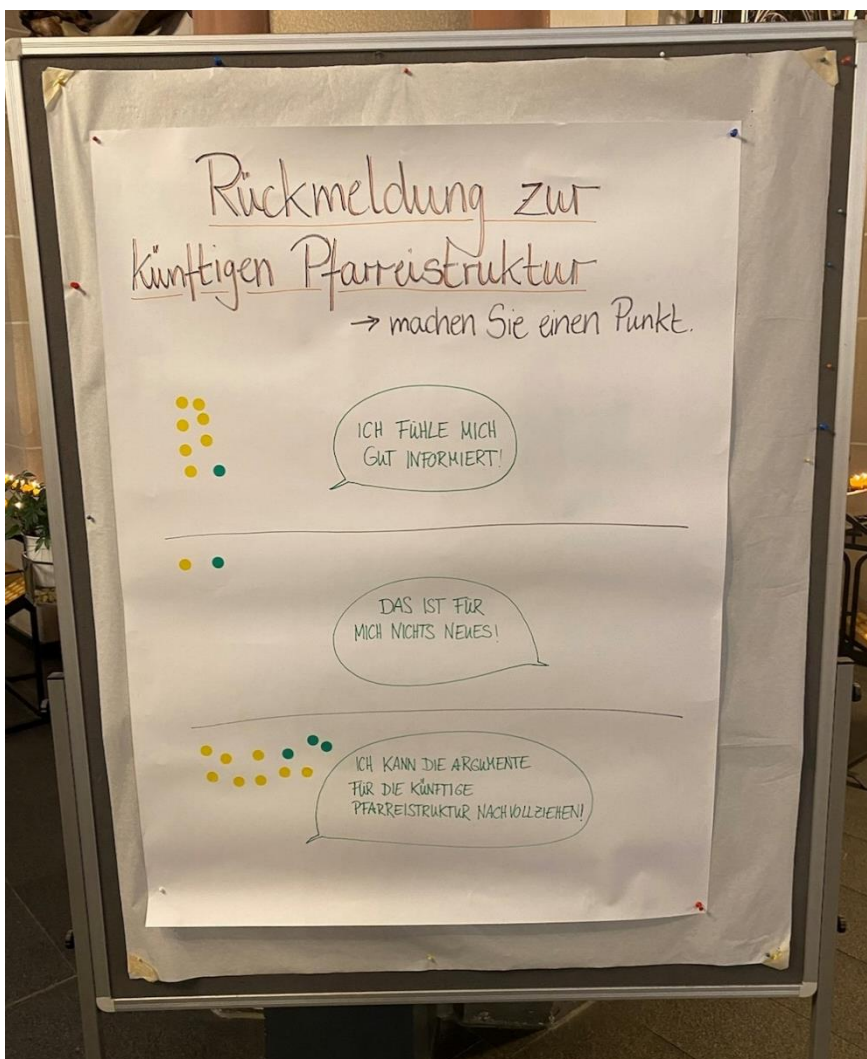 Rückmeldung zur
künftigen Pfarreistruktur
→ machen Sie einen Punkt.
ICH FÜHLE MICH
GUT INFORMIERT!
DAS IST FÜR
MICH NICHTS NEUES!
ICH KANN DIE ARGUMENTE
FÜR DIE KÜNFTIGE
PFARREISTRUKTUR NACHVOLLZIEHEN!